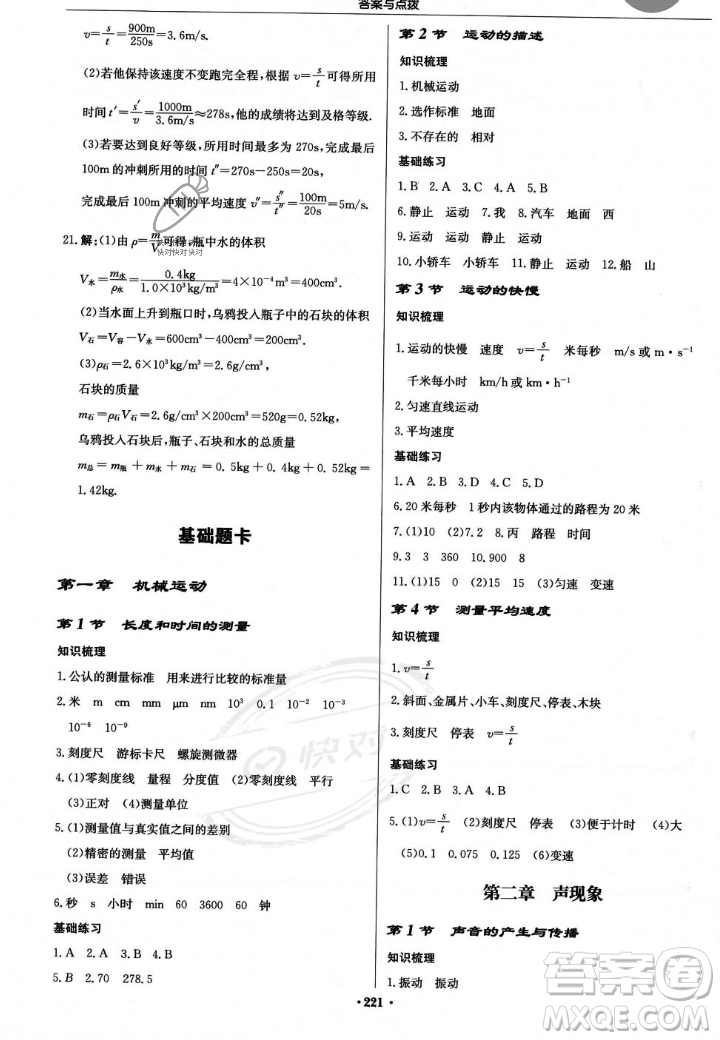 答案与点拨
v=s/t=900m/250s=3.6m/s.
(2)若他保持该速度不变跑完全程,根据 v=s/t 可得所用
时间 t′=s′/v=1000m/3.6m/s≈278s,他的成绩将达到及格等级.
(3)若要达到良好等级,所用时间最多为 270s,他最后
100m 的冲刺所用的时间 t″=270s-250s=20s,
完成最后 100m 冲刺的平均速度 v″=s″/t″=100m/20s=5m/s.
21.解:(1)由 ρ=m/V 可得,瓶中水的体积
快对快对快对
V水=m水/ρ水=0.4kg/1.0×10³kg/m³=4×10⁻⁴m³=400cm³.
(2)当水面上升到瓶口时,乌鸦投入瓶子中的石块的体积
V石=V容-V水=600cm³-400cm³=200cm³.
(3)ρ石=2.6×10³kg/m³=2.6g/cm³,
石块的质量
m石=ρ石V石=2.6g/cm³×200cm³=520g=0.52kg,
乌鸦投入石块后,瓶子、石块和水的总质量
m总=m瓶+m水+m石=0.5kg+0.4kg+0.52kg=
1.42kg.
基础题卡
第一章 机械运动
第1节 长度和时间的测量
知识梳理
1.公认的测量标准 用来进行比较的标准量
2.米 m cm mm μm nm 10³ 0.1 10⁻² 10⁻³
10⁻⁶ 10⁻⁹
3.刻度尺 游标卡尺 螺旋测微器
4.(1)零刻度线 量程 分度值 (2)零刻度线 平行
(3)正对 (4)测量单位
5.(1)测量值与真实值之间的差别
(2)精密的测量 平均值
(3)误差 错误
6.秒 s 小时 min 60 3600 60 钟
基础练习
1.A 2.A 3.B 4.B
5.B 2.70 278.5
第2节 运动的描述
知识梳理
1.机械运动
2.选作标准 地面
3.不存在的 相对
基础练习
1.B 2.A 3.C 4.A 5.B
6.静止 运动 7.我 8.汽车 地面 西
9.运动 运动 静止 运动
10.小轿车 小轿车 11.静止 运动 12.船 山
第3节 运动的快慢
知识梳理
1.运动的快慢 速度 v=s/t 米每秒 m/s 或 m·s⁻¹
千米每小时 km/h 或 km·h⁻¹
2.匀速直线运动
3.平均速度
基础练习
1.A 2.B 3.D 4.C 5.D
6.20 米每秒 1 秒内该物体通过的路程为 20 米
7.(1)10 (2)7.2 8.丙 路程 时间
9.3 3 360 10.900 8
11.(1)15 0 (2)15 15 (3)匀速 变速
第4节 测量平均速度
知识梳理
1.v=s/t
2.斜面、金属片、小车、刻度尺、停表、木块
3.刻度尺 停表 v=s/t
基础练习
1.C 2.A 3.D 4.B
5.(1)v=s/t (2)刻度尺 停表 (3)便于计时 (4)大
(5)0.1 0.075 0.125 (6)变速
第二章 声现象
第1节 声音的产生与传播
知识梳理
1.振动 振动
快对
答案圈
·221·